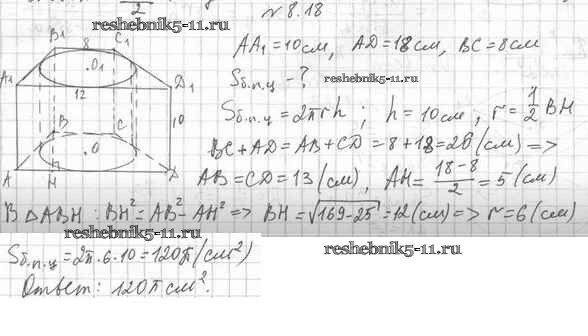 2
reshebnik5-11.ru
№ 8.18
B₁ 8 C₁
A₁ O₁ D₁
12
10
B C
O
A H D
AA₁ = 10 см, AD = 18 см, BC = 8 см
Sб.п.ц - ?
reshebnik5-11.ru
Sб.п.ц = 2πrh; h = 10 см; r = 1/2 BH
BC + AD = AB + CD = 8 + 18 = 26 (см) =>
AB = CD = 13 (см), AH = (18 - 8)/2 = 5 (см)
В △ABH: BH² = AB² - AH² => BH = √(169 - 25) = 12 (см) => r = 6 (см)
reshebnik5-11.ru
reshebnik5-11.ru
Sб.п.ц = 2π · 6 · 10 = 120π (см²)
Ответ: 120π см².